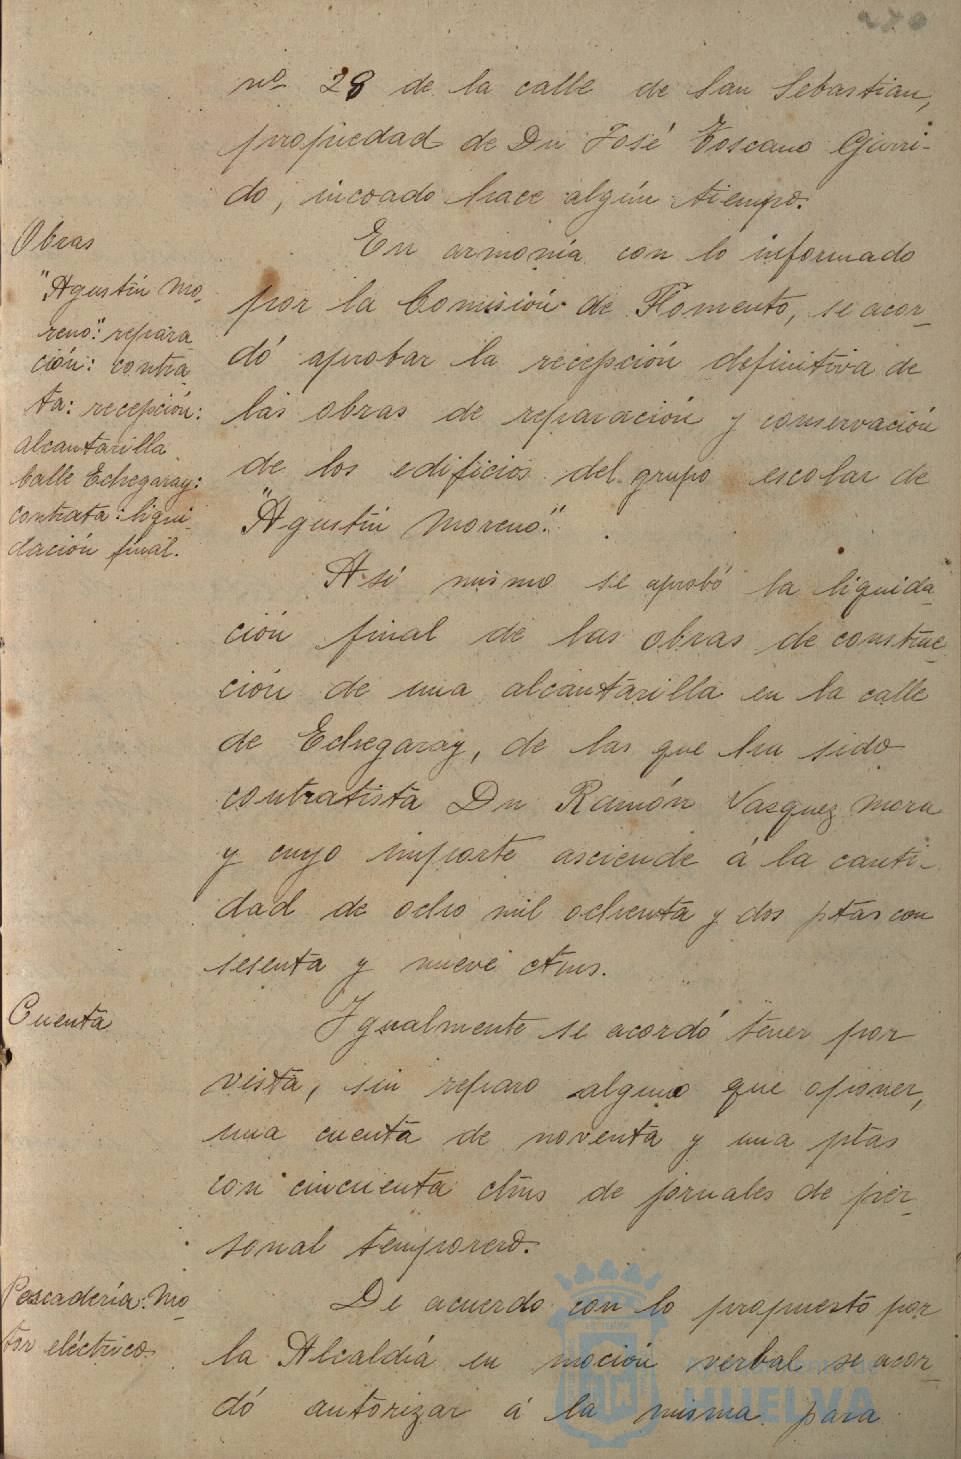 nº 28 de la calle de San Sebastian,
propiedad de Dn José Toscano Garri-
do, incoado hace algún tiempo.
Obras
"Agustín Mo-
reno": repara
ción: contra
ta: recepción:
alcantarilla
Calle Echegaray:
contrata: liqui-
dación final.
En armonía con lo informado
por la Comisión de Fomento, se acor-
dó aprobar la recepción definitiva de
las obras de reparación y conservación
de los edificios del grupo escolar de
"Agustín Moreno".
Así mismo se aprobó la liquida-
ción final de las obras de construc-
ción de una alcantarilla en la calle
de Echegaray, de las que ha sido
contratista Dn Ramón Vazquez Mora
y cuyo importe asciende á la canti-
dad de ocho mil ochenta y dos ptas con
sesenta y nueve ctms.
Cuenta
Igualmente se acordó tener por
vista, sin reparo alguno que oponer,
una cuenta de noventa y una ptas
con cincuenta ctms de jornales de per-
sonal temporero.
Pescadería: Mo-
tor eléctrico.
De acuerdo con lo propuesto por
la Alcaldía en moción verbal se acor-
dó autorizar á la misma para
HUELVA